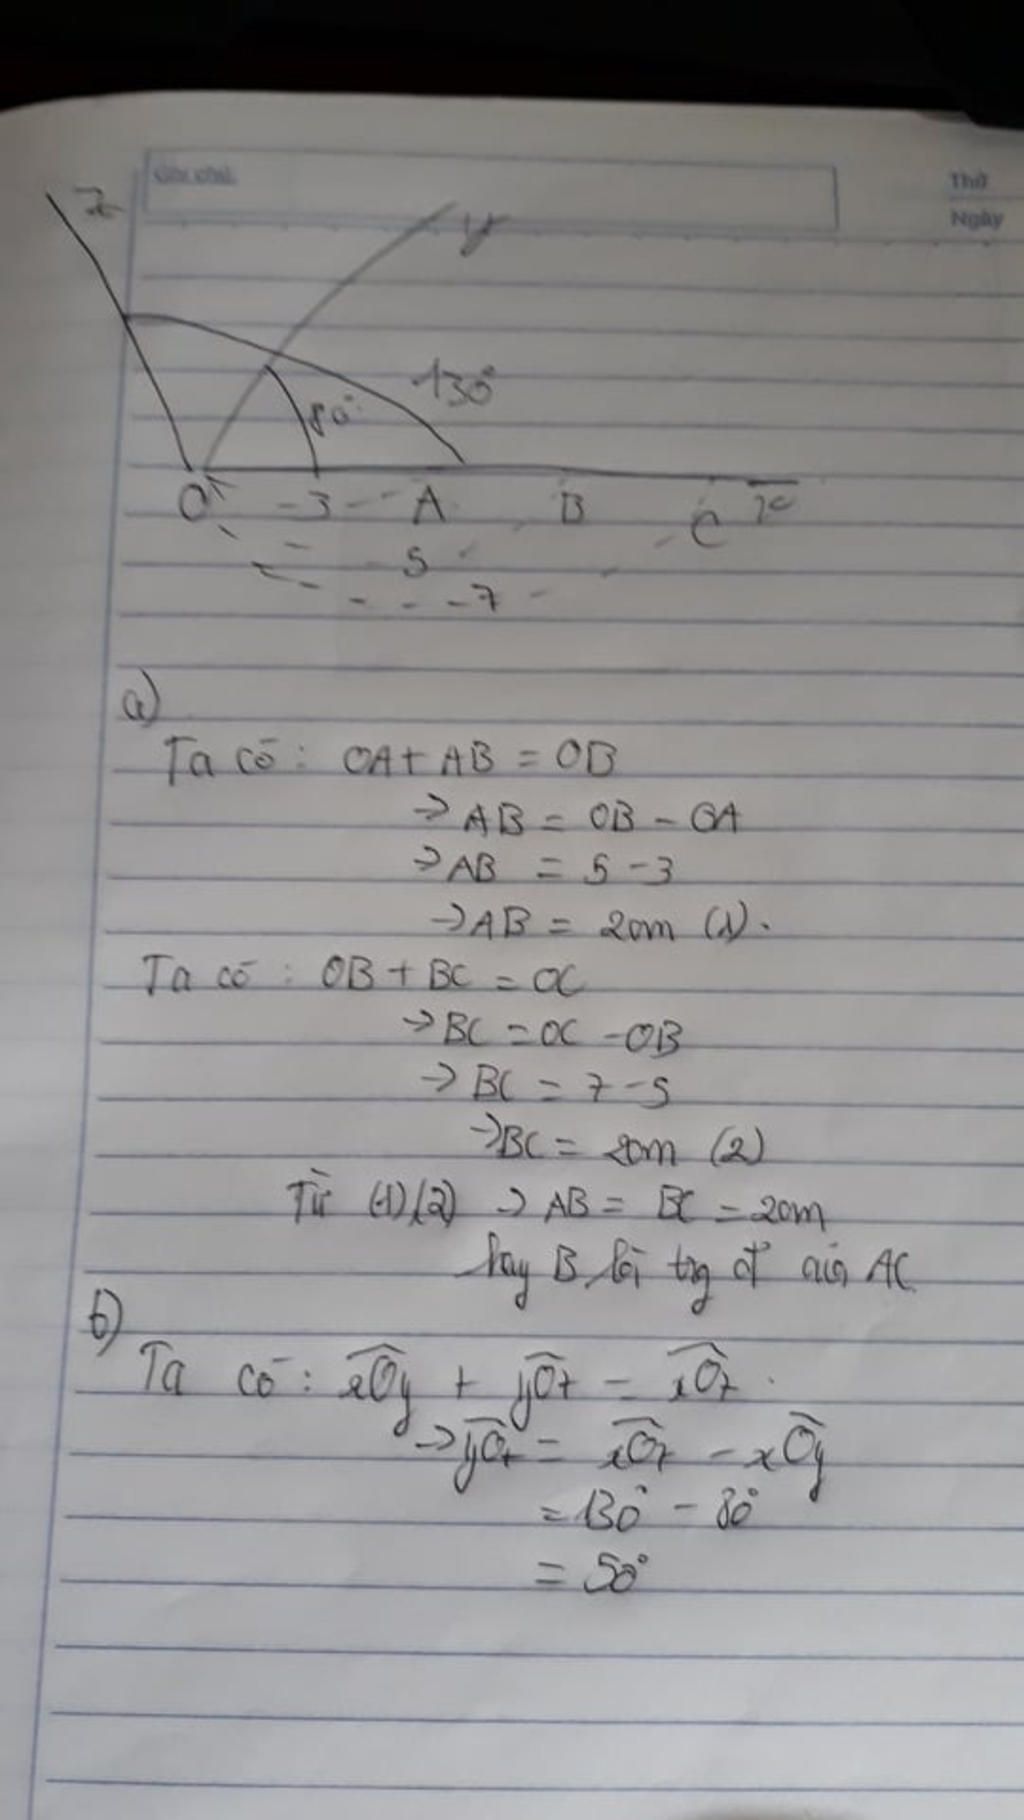 Ghi chú:
Thứ
Ngày
z
y
130°
80°
O 3 A B C x
5
7
a)
Ta có: OA + AB = OB
→ AB = OB - OA
→ AB = 5 - 3
→ AB = 2cm (1).
Ta có: OB + BC = OC
→ BC = OC - OB
→ BC = 7 - 5
→ BC = 2cm (2)
Từ (1)(2) → AB = BC = 2cm
hay B là trg đ của AC
b)
Ta có: xÔy + yÔz = xÔz.
→ yÔz = xÔz - xÔy
= 130° - 80°
= 50°